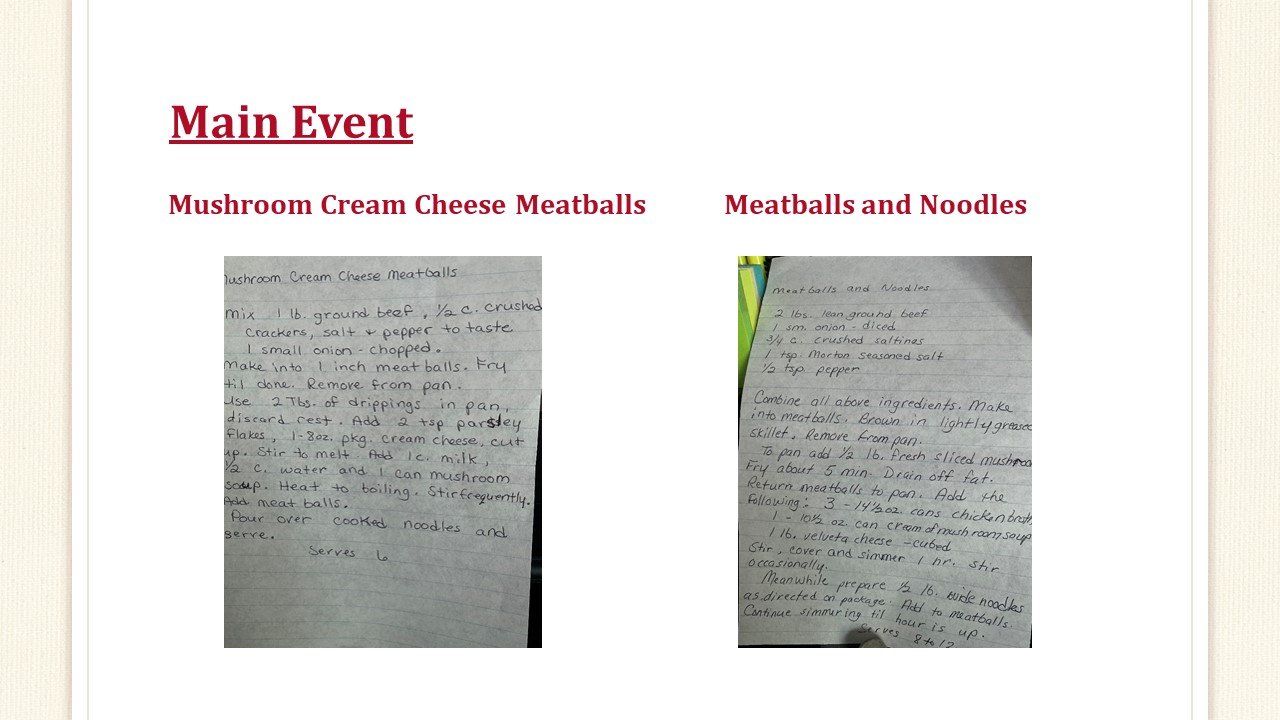 Main Event
Mushroom Cream Cheese Meatballs
Meatballs and Noodles
ushroom Cream Cheese Meatballs
Mix 1 lb. ground beef, 1/2 c. crushed
crackers, salt & pepper to taste
1 small onion - chopped.
Make into 1 inch meat balls. Fry
til done. Remove from pan.
Use 2 Tbs. of drippings in pan,
discard rest. Add 2 tsp parsley
flakes, 1-8oz. pkg. cream cheese, cut
up. Stir to melt. Add 1 c. milk,
1/2 c. water and 1 can mushroom
soup. Heat to boiling. Stir frequently.
Add meat balls.
Pour over cooked noodles and
serve.
Serves 6
Meatballs and Noodles
2 lbs. lean ground beef
sm. onion - diced
3/4 c. crushed saltines
1 tsp. Morton seasoned salt
1/2 tsp. pepper
Combine all above ingredients. Make
into meatballs. Brown in lightly greased
skillet. Remove from pan.
To pan add 1/2 lb. fresh sliced mushroom
Fry about 5 min. Drain off fat.
Return meatballs to pan. Add the
following: 3 - 14 1/2 oz. cans chicken broth
1 - 10 1/2 oz. can cream of mushroom soup
1 lb. velveta cheese - cubed
Stir, cover and simmer 1 hr. stir
occasionally.
Meanwhile prepare 1/2 lb. wide noodles
as directed on package. Add to meatballs.
Continue simmuring til hour is up.
Serves 8 to